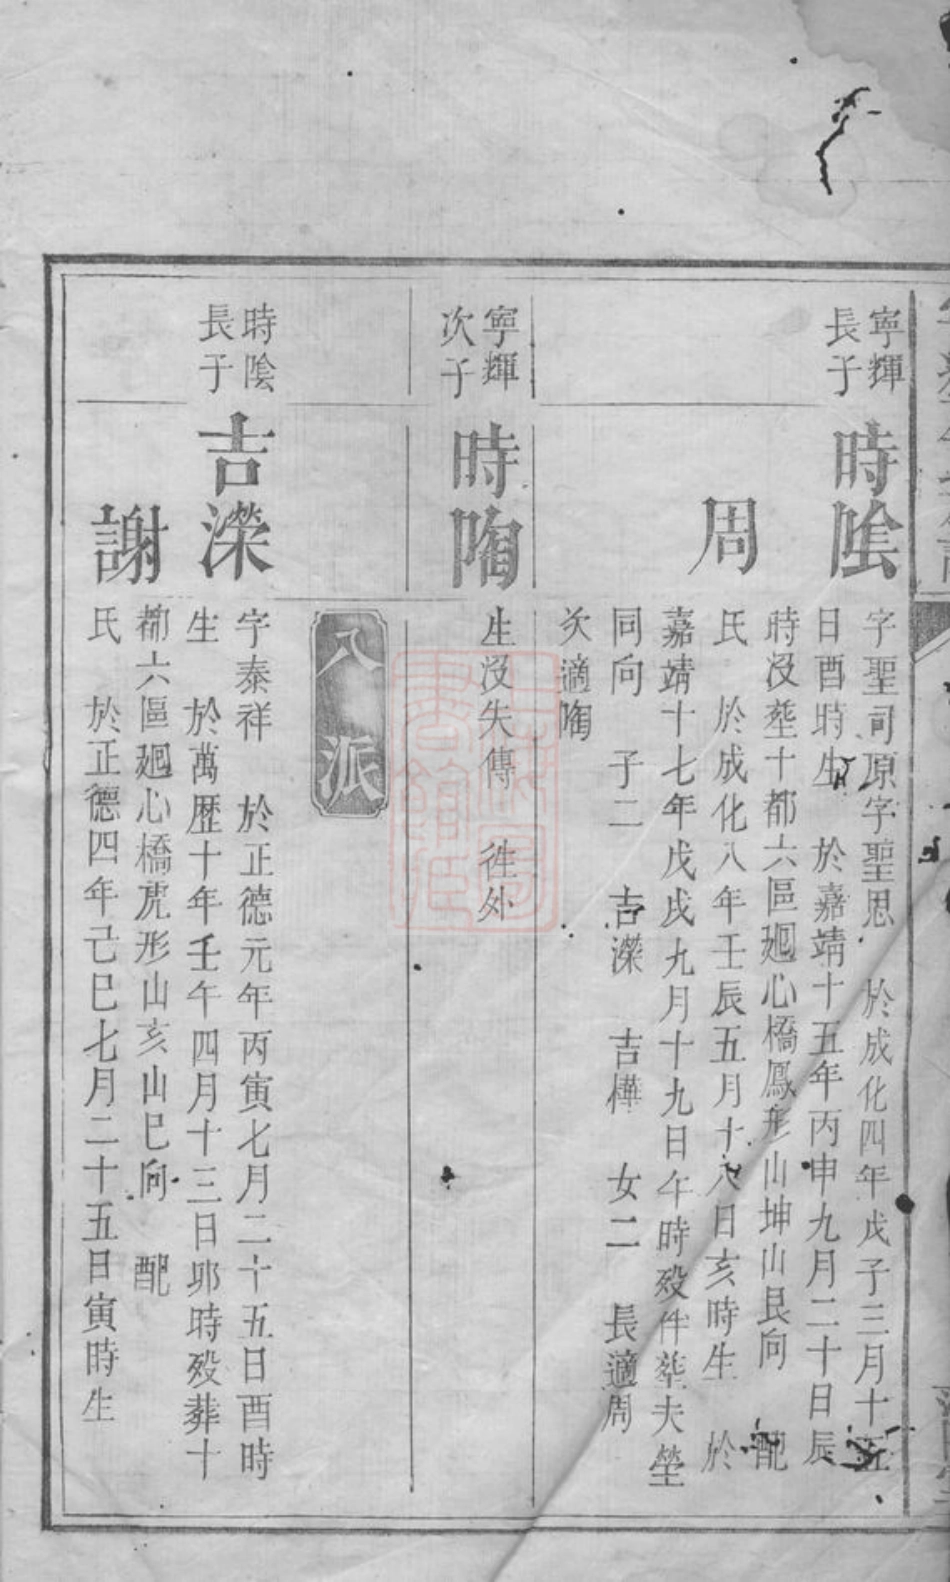 寧輝
長子
時陰
字聖司原字聖思 於成化四年戊子三月十五
日酉時生 於嘉靖十五年丙申九月二十日辰
時沒塟十都六區廻心橋鳳形山坤山艮向 配
周
氏 於成化八年壬辰五月十八日亥時生 於
嘉靖十七年戊戌九月十九日午時殁伴塟夫塋
同向 子二 吉濚 吉樺 女二 長適周
次適陶
寧輝
次子
時陶
生沒失傳 徃外
八派
時陰
長子
吉濚
字泰祥 於正德元年丙寅七月二十五日酉時
生 於萬歷十年壬午四月十三日卯時殁葬十
都六區廻心橋虎形山亥山巳向 配
謝
氏 於正德四年己巳七月二十五日寅時生